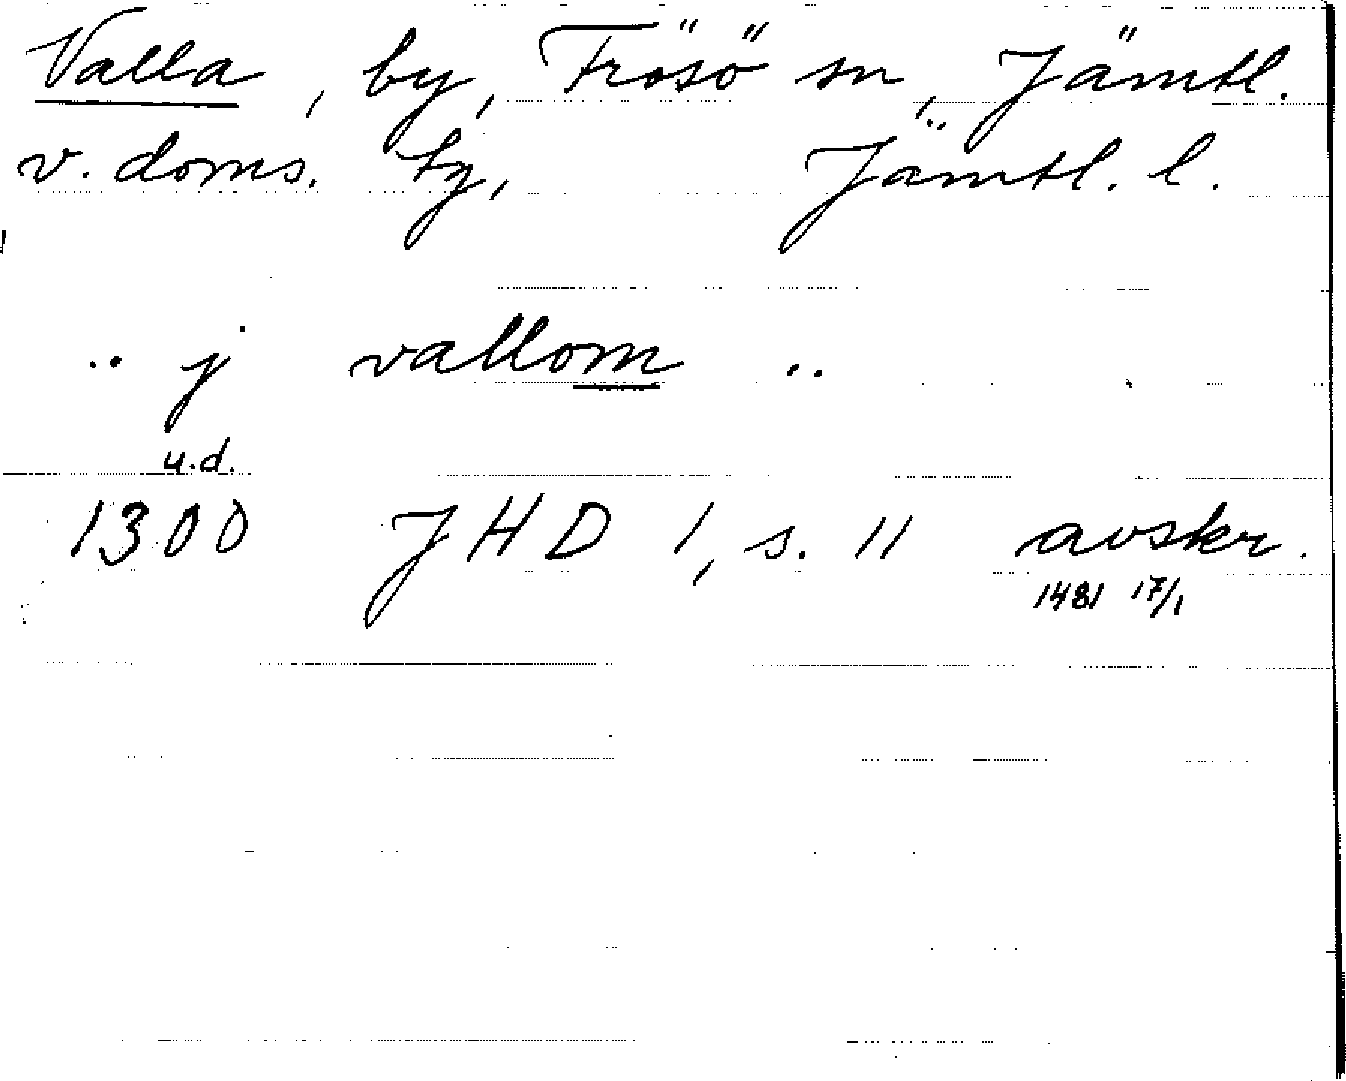 Valla, by, Frösö sn, Jämtl.
v. doms. tg, Jämtl. l.
.. j vallom ..
u.d.
1300 JHD 1, s. 11 avskr.
1481 17/1